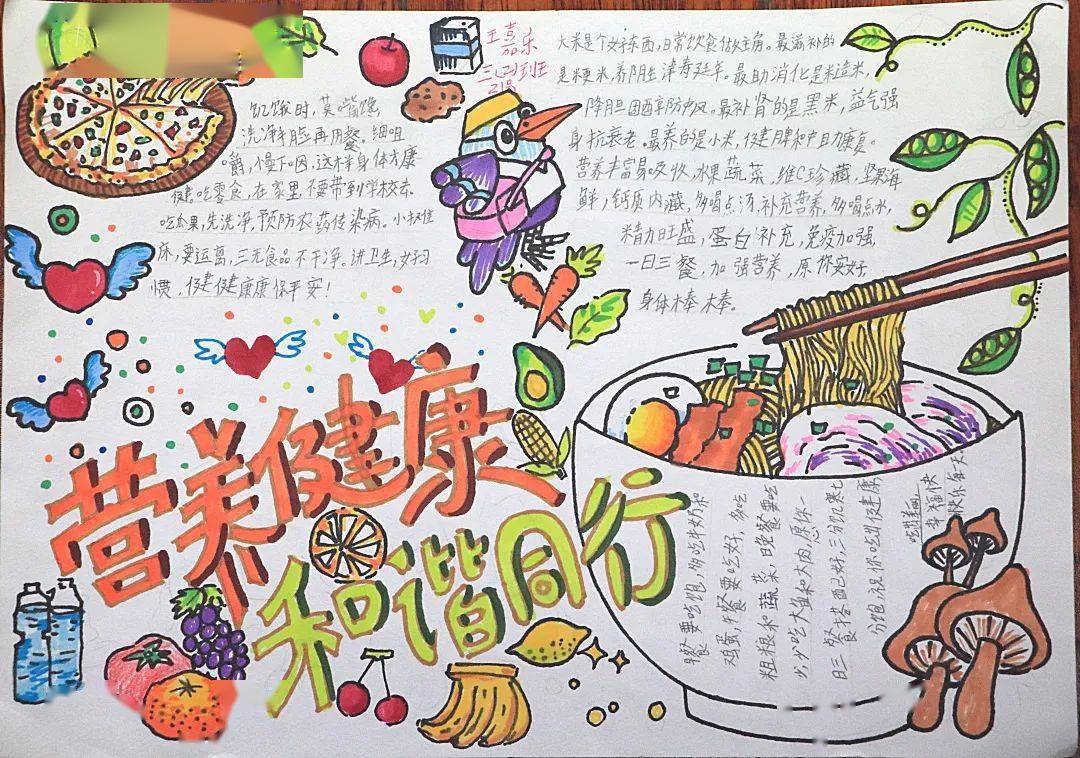 王嘉乐
三(四)班
21号
饥饿时,莫嘴馋,
洗净手脸再用餐。细咀
嚼,慢下咽,这样身体方康
健。吃零食,在家里,不要带到学校去。
吃瓜果,先洗净,预防农药传染病。小权住
床,要远离,三无食品不干净。讲卫生,好习
惯,健健康康保平安!
大米是个好东西,日常饮食做主角。最滋补的
是粳米,养阴生津寿延年。最助消化是糙米,
降胆固醇防中风。最补肾的是黑米,益气强
身抗衰老。最养的是小米,健脾和中自力康复。
营养丰富易吸收,水果蔬菜,维C珍藏,坚果海
鲜,钙质内藏,多喝点汤,补充营养,多喝点水,
精力旺盛,蛋白补充,免疫加强,
一日三餐,加强营养,原你安好,
身体棒棒。
营养健康
和谐同行
早餐要吃饱,多吃牛奶和
鸡蛋,午餐要吃好,多吃
粗粮和蔬菜,晚餐要吃
少,少吃大鱼和大肉,愿你一
日三餐搭配好,三分饥寒七
分饱,祝你吃出健康,
吃出美丽,
幸福快
快乐每天